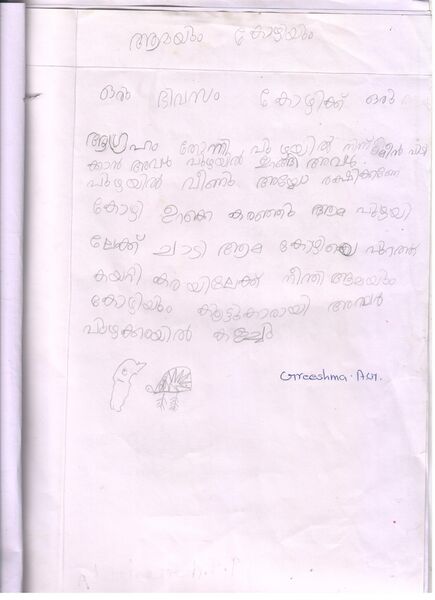 ആമയും കോഴിയും
ഒരു ദിവസം കോഴിക്ക് ഒരു
ആഗ്രഹം തോന്നി പുഴയിൽ നിന്ന് മീൻ പിടി
ക്കാൻ അവൾ പുഴയിൽ ഇറങ്ങി അവൾ
പുഴയിൽ വീണു അയ്യോ രക്ഷിക്കണേ
കോഴി ഉറക്കെ കരഞ്ഞു ആമ പുഴയി
ലേക്ക് ചാടി ആമ കോഴിയെ പുറത്ത്
കയറ്റി കരയിലേക്ക് നീന്തി ആമയും
കോഴിയും കൂട്ടുകാരായി അവർ
പുഴക്കരയിൽ കളിച്ചു
Greeshma. A.M.